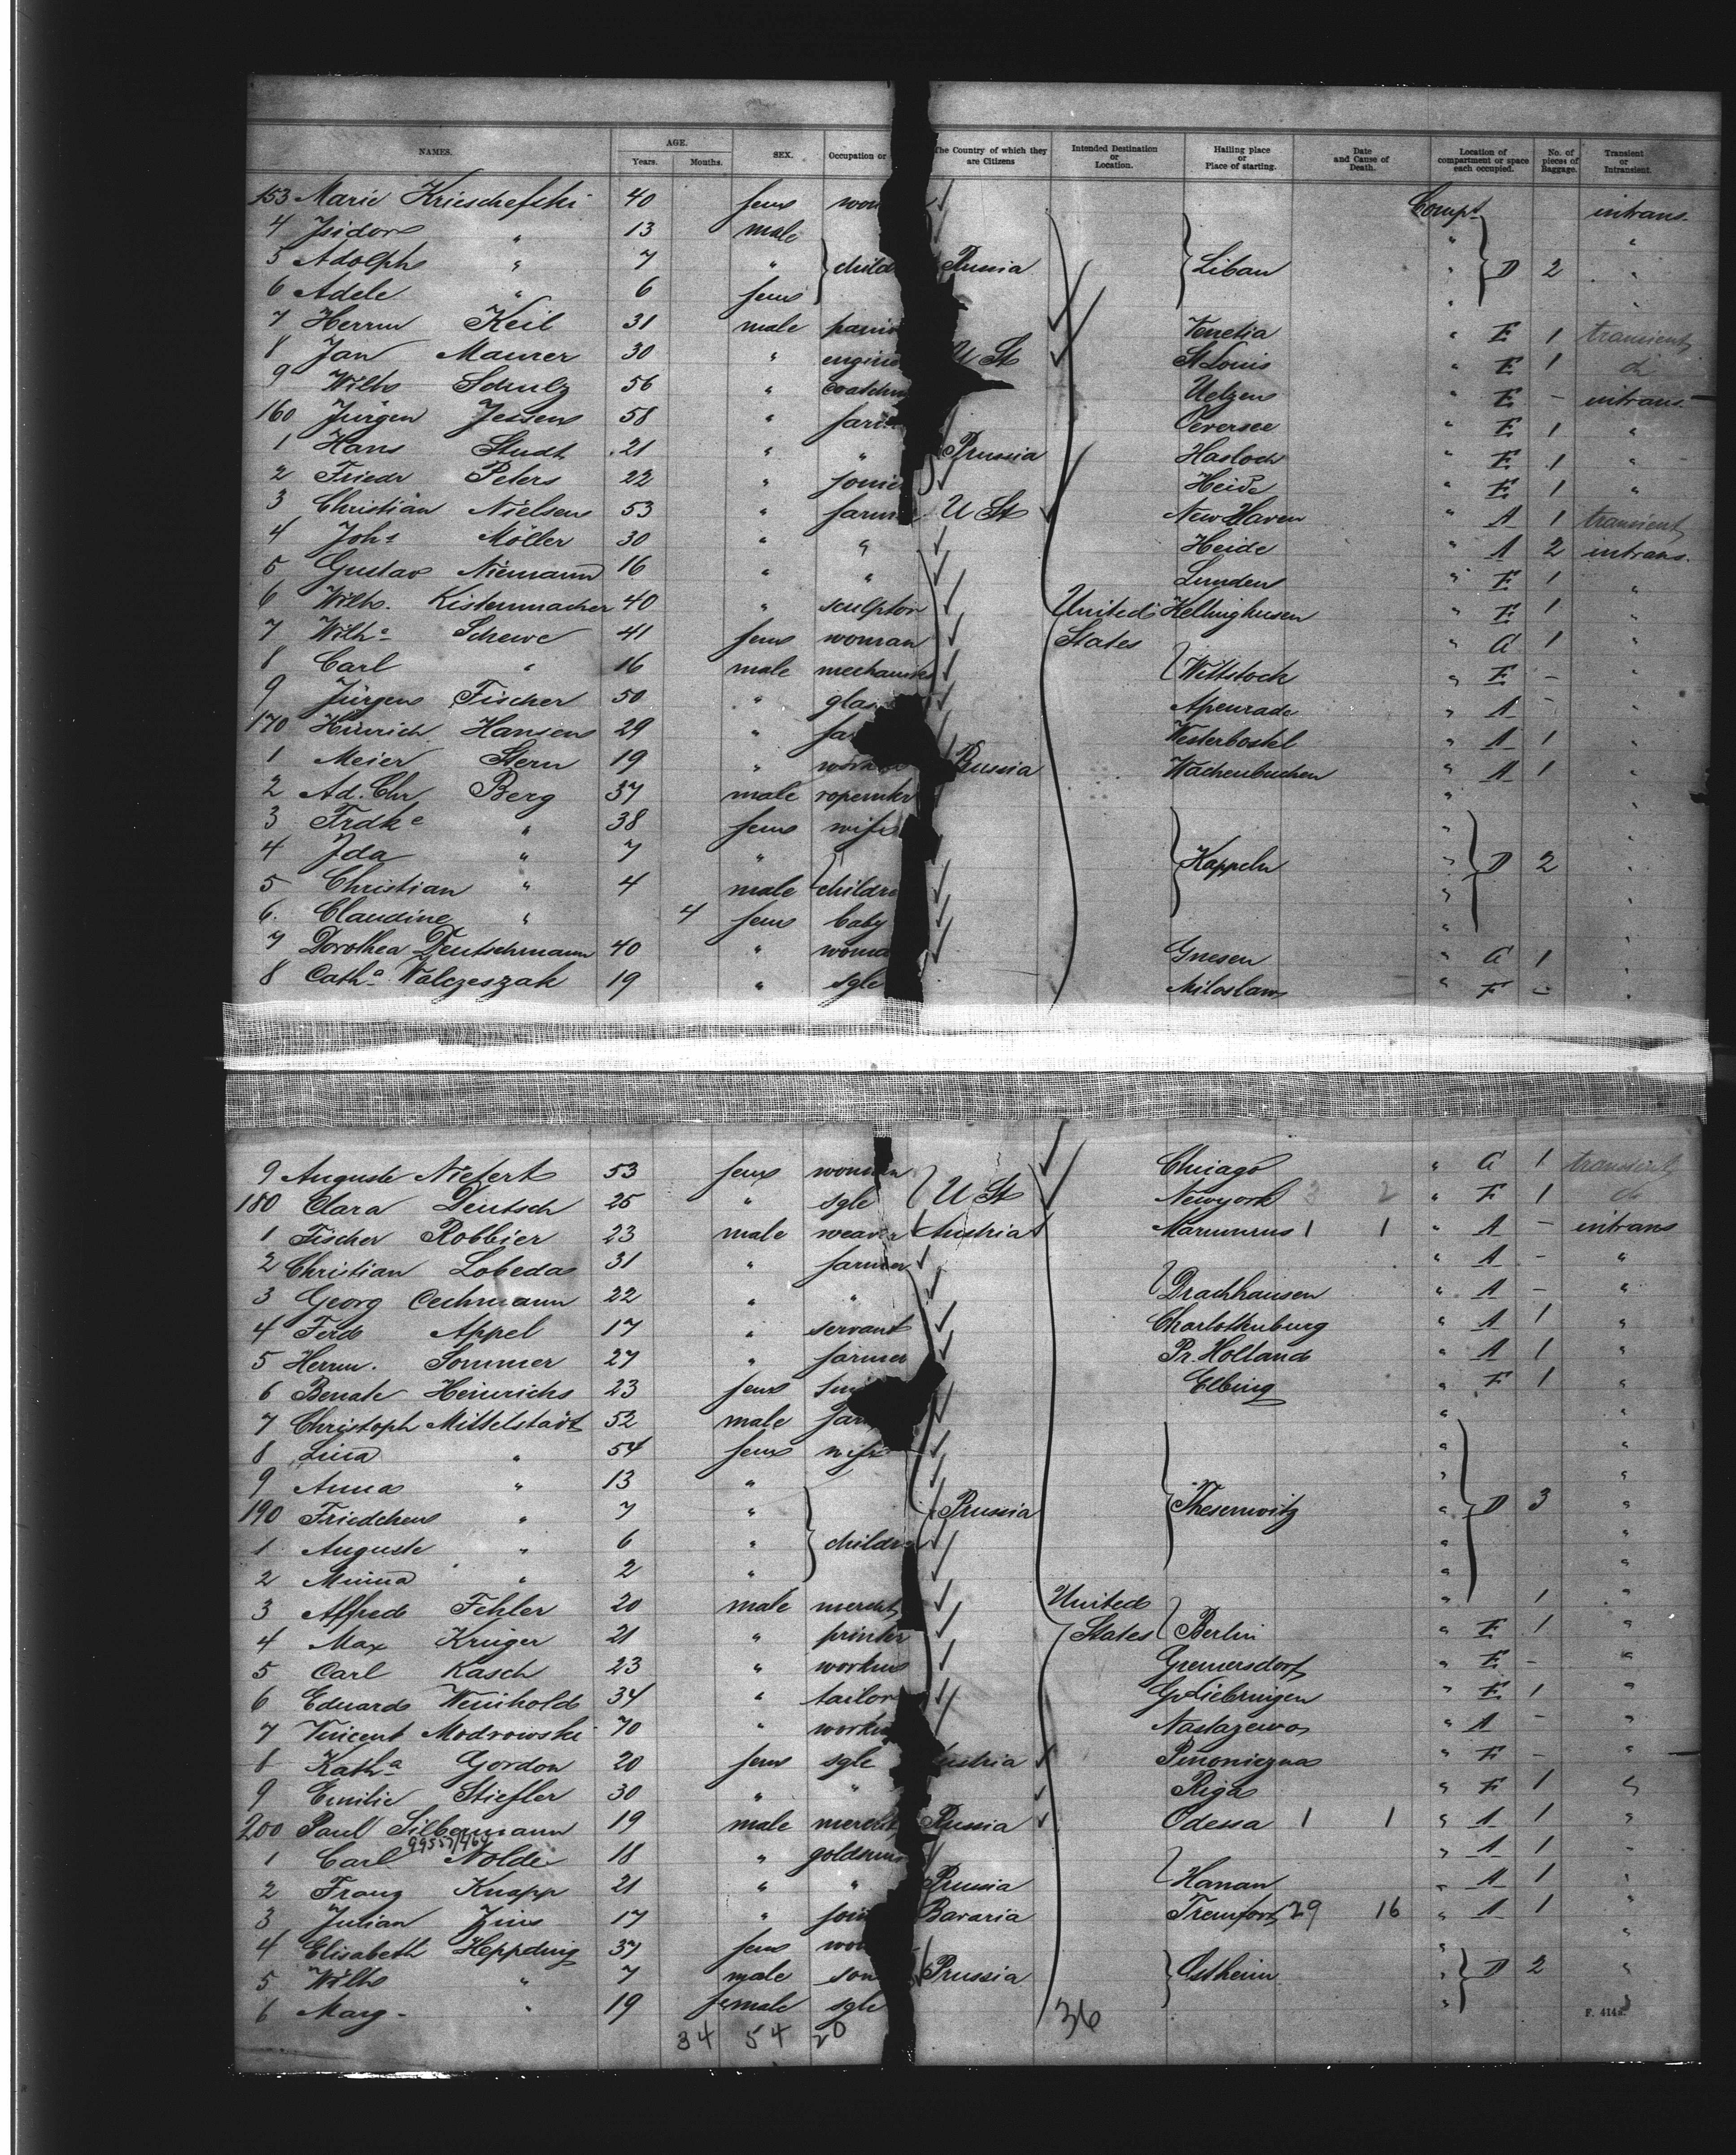 NAMES. AGE. Years. Months. SEX. Occupation or The Country of which they are Citizens Intended Destination or Location. Hailing place or Place of starting. Date and Cause of Death. Location of compartment or space each occupied. No. of pieces of Baggage. Transient or Intransient.
153 Marie Krieschefski 40 fem Compt intrans.
4 Isidor " 13 male " "
5 Adolph " 7 " child Russia Liban " D 2 "
6 Adele " 6 fem " "
7 Herrm Keil 31 male Venetia " E 1 transient
8 Jan Maurer 30 " engine U St St Louis " E 1 do
9 Wilh Schulz 56 " Coachm Uelzen " E - intrans.
160 Jürgen Jessen 58 " far Oeversee " E 1 "
1 Hans Studt 21 " " Prussia Hasloch " E 1 "
2 Friedr Peters 22 " joine Heide " E 1 "
3 Christian Nielsen 53 " farme U St New Haven " A 1 transient
4 Joh: Möller 30 " " Heide " A 2 intrans.
5 Gustav Niemann 16 " " Lunden " E 1 "
6 Wilh. Kistenmacher 40 " sculptor United Kellinghusen " E 1 "
7 Wilhe Schewe 41 fem woman States " G 1 "
8 Carl " 16 male mechanik Wittstock " E - "
9 Jürgen Fischer 50 " glas Apenrade " A - "
170 Hinrich Hansen 29 " far Westerborstel " A 1 "
1 Meier Stern 19 " Prussia Wachenbuchen " A 1 "
2 Ad. Chr Berg 37 male ropemkr " "
3 Frdke " 38 fem wife " "
4 Ida " 7 " Kappeln " D 2 "
5 Christian " 4 male childre " "
6. Claudine " 4 fem baby " "
7 Dorothea Deutschmann 40 " woma Gnesen " G 1 "
8 Catha Walczeszak 19 " sgle Miloslaw " F - "
9 Auguste Niefert 53 fem woman Chicago " G 1 transient
180 Clara Deutsch 25 " sgle U St Newyork 3 2 " F 1 do
1 Fischer Robbier 23 male weaver Austria 1 1 " A - intrans
2 Christian Lobeda 31 " farmer " A - "
3 Georg Oechmann 22 " " Drachhausen " A - "
4 Ferd Appel 17 " servant Charlottenburg " A 1 "
5 Herrm. Sommer 27 " farmer Pr. Holland " A 1 "
6 Renate Heinrichs 23 fem Elbing " F 1 "
7 Christoph Mittelstädt 52 male far " "
8 Lina " 54 fem wife " "
9 Anna " 13 " " "
190 Friedchen " 7 " Prussia " D 3 "
1 Auguste " 6 " childr " "
2 Minna " 2 " " "
3 Alfred Fehler 20 male mercht United " 1 "
4 Max Krüger 21 " printer States Berlin " E 1 "
5 Carl Kasch 23 " workm Gremersdorf " E - "
6 Eduard Weinhold 34 " tailor " E 1 "
7 Vincent Modrowski 70 " workm Nastazewo " A - "
8 Katha Gordon 20 fem sgle ustria " F - "
9 Emilie Stiefler 30 " " Riga " F 1 "
200 Paul Silbermann 19 male mercht Russia Odessa 1 1 " A 1 "
1 Carl Nolde 18 " goldsm " A 1 "
2 Franz Knapp 21 " " Prussia Hanau " A 1 "
3 Julian Zins 17 " join Bavaria 29 16 " A 1 "
4 Elisabeth Heppding 37 fem wo " "
5 Wilh " 7 male son Prussia Ostheim " D 2 "
6 Marg. " 19 female sgle " "
34 54 20 36
F. 414